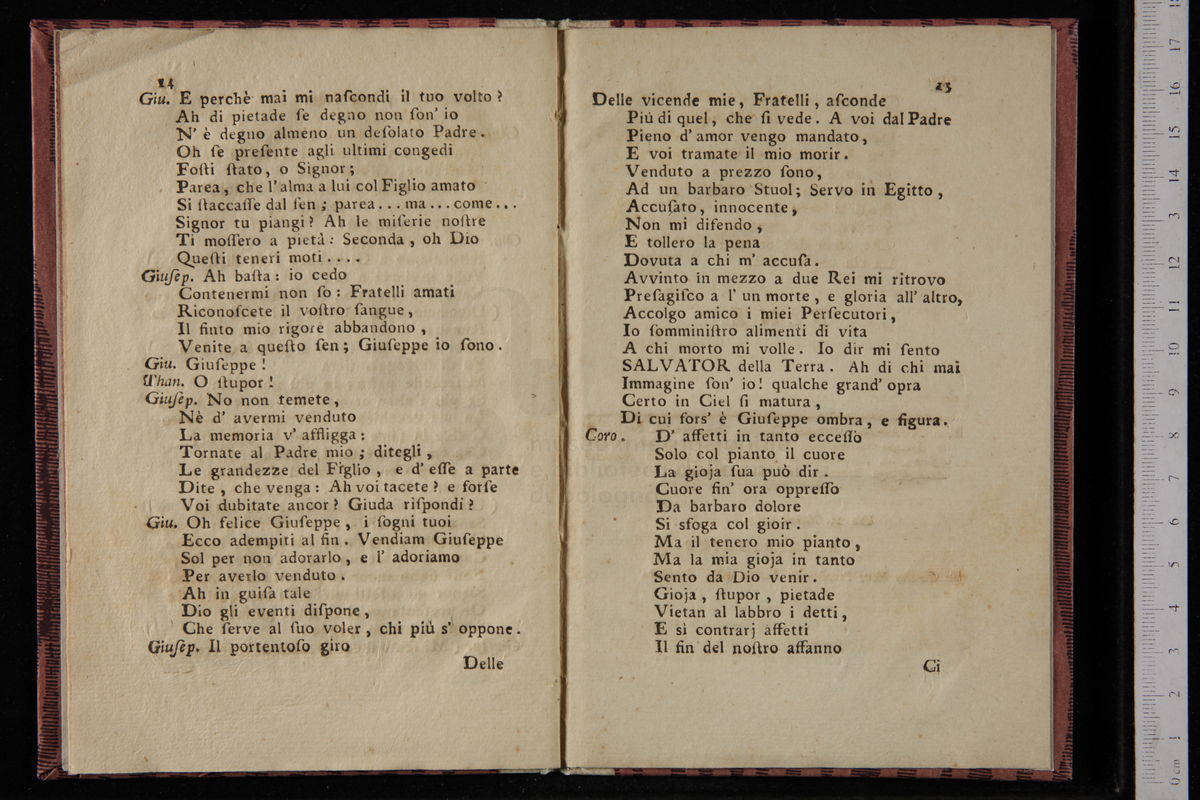 14
Giu. E perchè mai mi naſcondi il tuo volto?
Ah di pietade ſe degno non ſon' io
N' è degno almeno un deſolato Padre.
Oh ſe preſente agli ultimi congedi
Foſti ſtato, o Signor;
Parea, che l'alma a lui col Figlio amato
Si ſtaccaſſe dal ſen; parea... ma... come...
Signor tu piangi? Ah le miſerie noſtre
Ti moſſero a pietà: Seconda, oh Dio
Queſti teneri moti....
Giuſep. Ah baſta: io cedo
Contenermi non ſo: Fratelli amati
Riconoſcete il voſtro ſangue,
Il finto mio rigore abbandono,
Venite a queſto ſen; Giuſeppe io ſono.
Giu. Giuſeppe!
Than. O ſtupor!
Giuſep. No non temete,
Nè d' avermi venduto
La memoria v' affligga:
Tornate al Padre mio; ditegli,
Le grandezze del Figlio, e d' eſſe a parte
Dite, che venga: Ah voi tacete? e forſe
Voi dubitate ancor? Giuda riſpondi?
Giu. Oh felice Giuſeppe, i ſogni tuoi
Ecco adempiti al fin. Vendiam Giuſeppe
Sol per non adorarlo, e l' adoriamo
Per averlo venduto.
Ah in guiſa tale
Dio gli eventi diſpone,
Che ſerve al ſuo voler, chi più s' oppone.
Giuſep. Il portentoſo giro
Delle
15
Delle vicende mie, Fratelli, aſconde
Più di quel, che ſi vede. A voi dal Padre
Pieno d' amor vengo mandato,
E voi tramate il mio morir.
Venduto a prezzo ſono,
Ad un barbaro Stuol; Servo in Egitto,
Accuſato, innocente,
Non mi difendo,
E tollero la pena
Dovuta a chi m' accuſa.
Avvinto in mezzo a due Rei mi ritrovo
Preſagiſco a l' un morte, e gloria all' altro,
Accolgo amico i miei Perſecutori,
Io ſomminiſtro alimenti di vita
A chi morto mi volle. Io dir mi ſento
SALVATOR della Terra. Ah di chi mai
Immagine ſon' io! qualche grand' opra
Certo in Ciel ſi matura,
Di cui fors' è Giuſeppe ombra, e figura.
Coro. D' affetti in tanto ecceſſo
Solo col pianto il cuore
La gioja ſua può dir.
Cuore fin' ora oppreſſo
Da barbaro dolore
Si sfoga col gioir.
Ma il tenero mio pianto,
Ma la mia gioja in tanto
Sento da Dio venir.
Gioja, ſtupor, pietade
Vietan al labbro i detti,
E sì contrarj affetti
Il fin del noſtro affanno
Ci